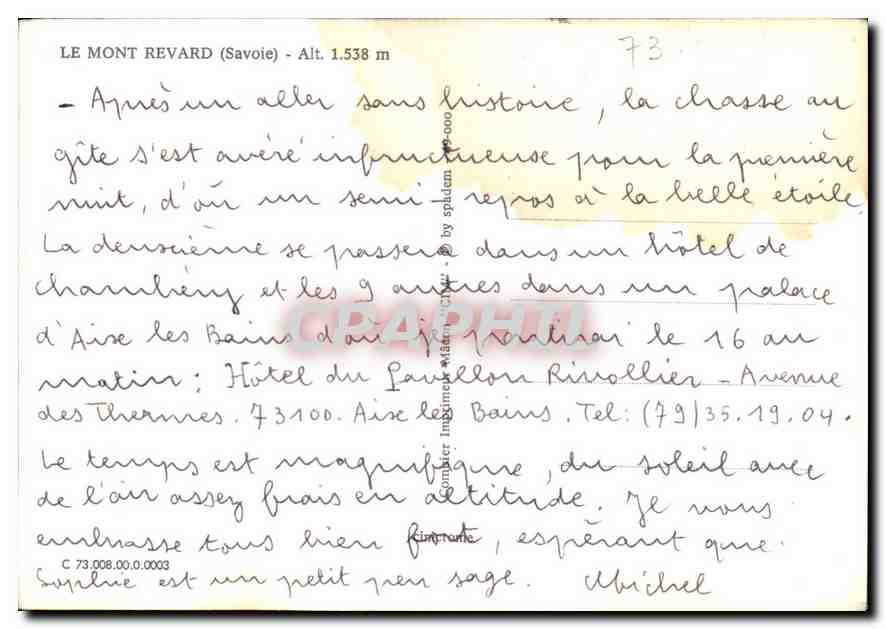 LE MONT REVARD (Savoie) - Alt. 1.538 m
73.
- Après un aller sans histoire, la chasse au
gîte s'est avéré infructueuse pour la première
nuit, d'où un semi-repos à la belle étoile.
La deuxième se passera dans un hôtel de
Chambéry et les 9 autres dans un palace
d'Aix les Bains d'où je partirai le 16 au
matin : Hôtel du Pavillon Rivollier - Avenue
des Thermes. 73100. Aix les Bains. Tel: (79) 35.19.04.
Le temps est magnifique, du soleil avec
de l'air assez frais en altitude. Je vous
embrasse tous bien fort, espérant que
Sophie est un petit peu sage. Michel
cimcrome
C 73.008.00.0.0003
Combier Imprimeur Mâcon "CIM" - © by spadem
CPAPHIL